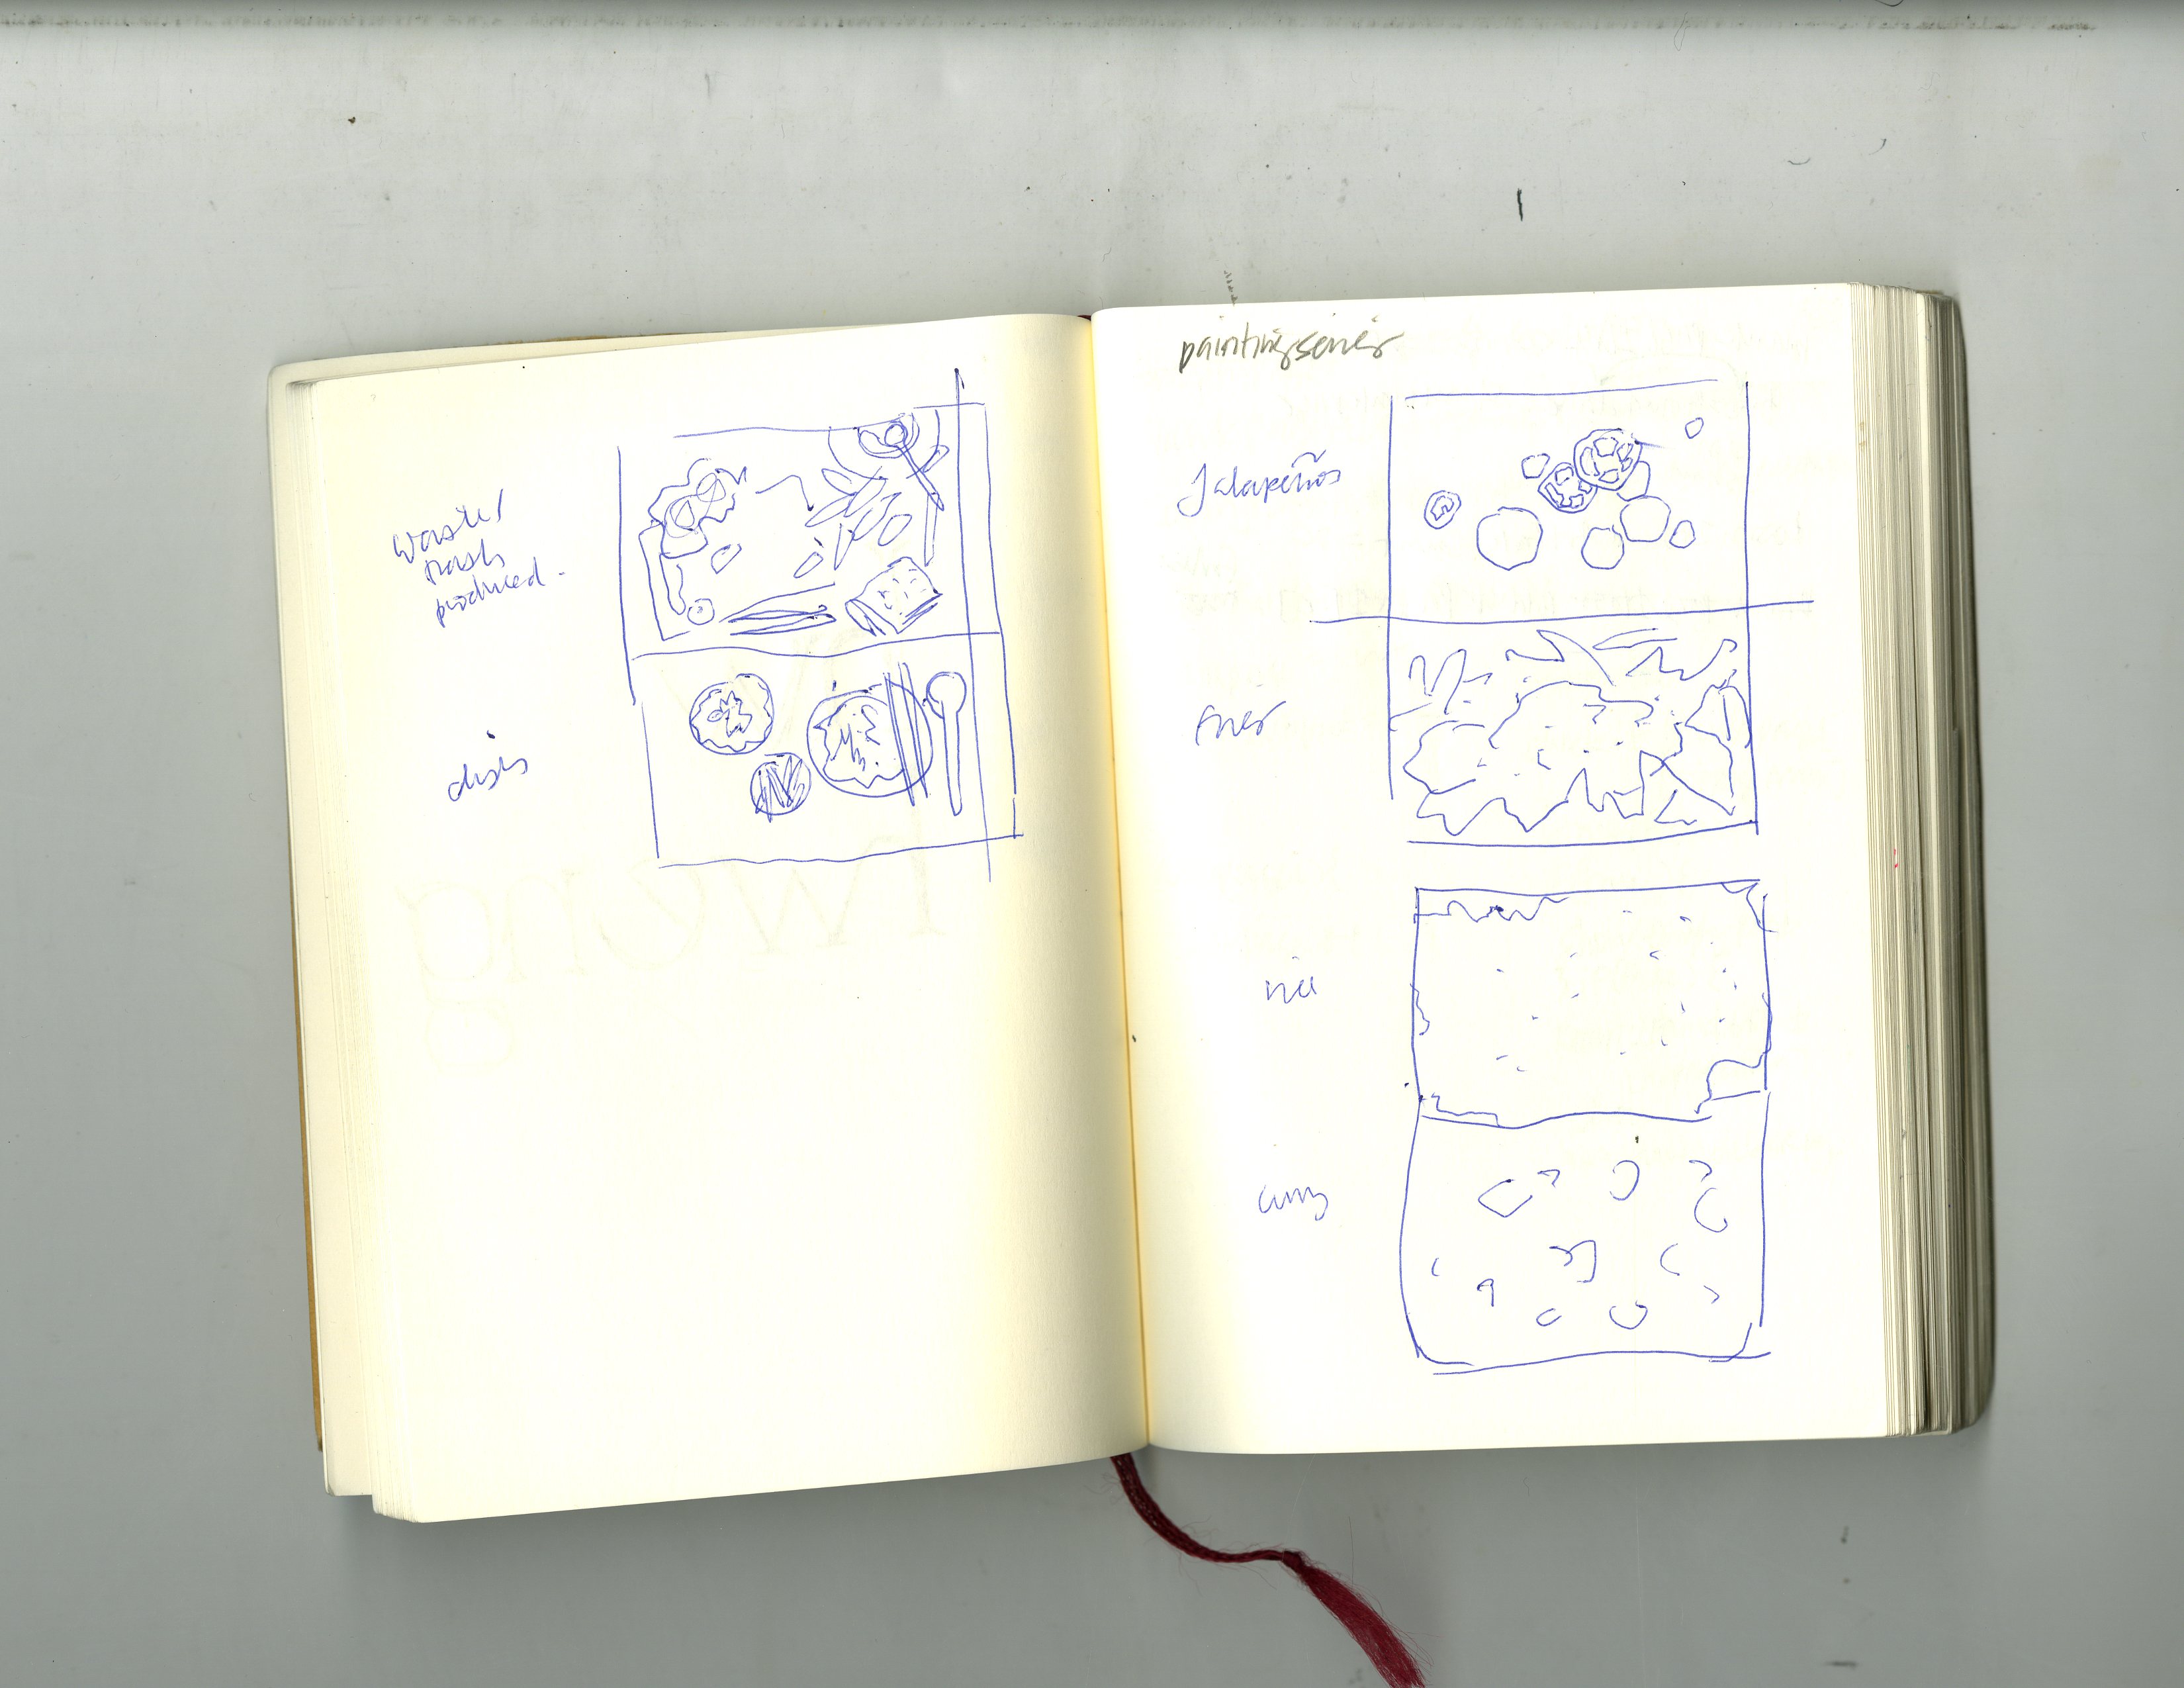 waste/
trash
produced.
dish
painting series
Jalapeños
rice
curry